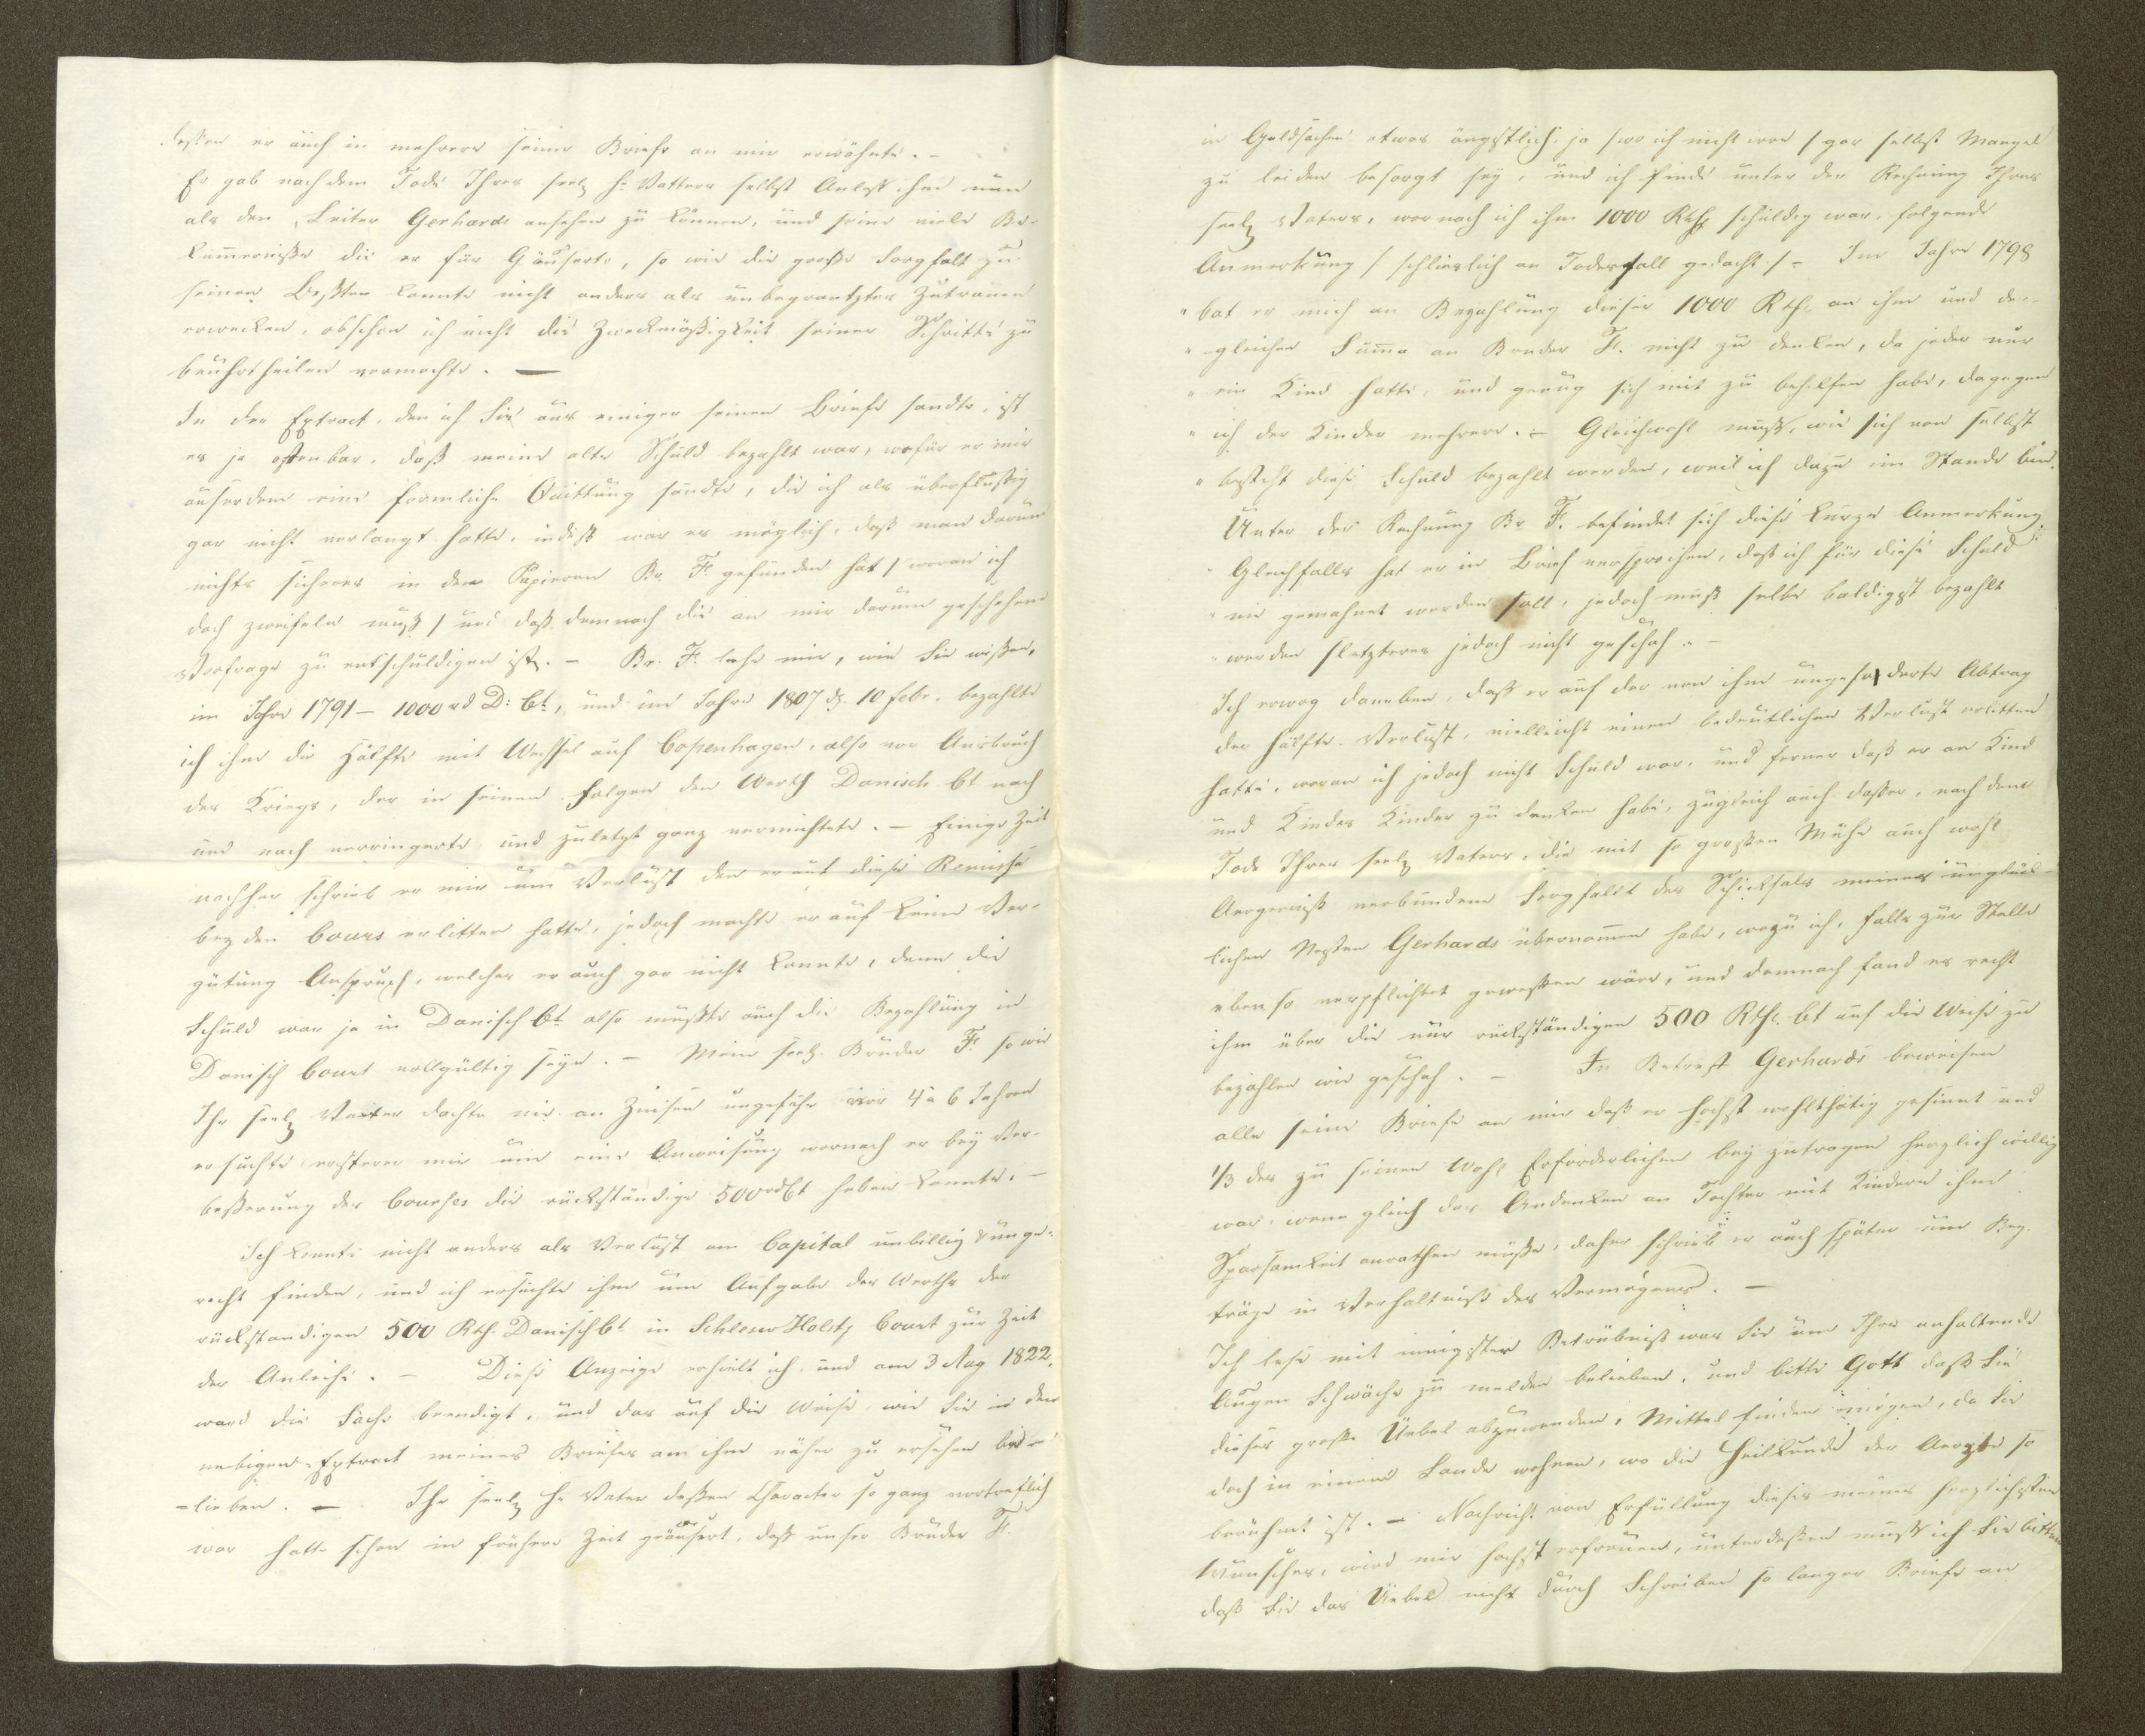 deßen er auch in mehrere seiner Briefe an mir erwähnte. –
Er gab nach dem Tode Ihres seel. H. Vatters selbst Anlaß ihn nun
als den Leiter Gerhards ansehen zu können, und seine viele Be-
kümmerniße die er für G äuserte, so wie die große Sorgfalt zu
seinen Besten konnte nicht anders als unbegrantztes Zutrauen
erwecken, obschon ich nicht die Zweckmäßigkeit seiner Schritte zu
beuhrtheilen vermochte. —
In den Extract, den ich Sie aus einiger seinen Briefe sandte, ist
es ja offenbar, daß meine alte Schuld bezahlt war, wofür er mir
auserdem eine formliche Quittung sandte, die ich als überflußig
gar nicht verlangt hatte, indeß war es möglich, daß man darum
nichts sicheres in den Papieren Br. F. gefunden hat / woran ich
doch zweifeln muß / und daß demnach die an mir darum geschehene
Vorfrage zu entschuldigen ist. – Br. F. lieh mir, wie Sie wißen,
im Jahre 1791 – 1000 rd D: Ct, und im Jahre 1807 d. 10 Febr. bezahlte
ich ihm die Hälfte mit Wechsel auf Copenhagen, also vor Ausbruch
des Kriegs, der in seinen Folgen den Werth Danisch Ct nach
und nach verringerte und zuletzt ganz vernichtete. – Einige Zeit
nachher schrieb er mir um Verlust den er auf diese Remise
bey den Cours erlitten hatte, jedoch machte er auf keine Ver-
gütung Anspruch, welches er auch gar nicht konnte, denn die
Schuld war ja in Danisch Ct also mußte auch die Bezahlung in
Danisch Court vollgültig seyn. – Mein seel. Bruder F. so wie
Ihr seel. Vatter dachte nie an Zinsen ungefähr vor 4 a 6 Jahren
ersuchte ersterer mir um eine Anweisung wornach er bey Ver-
beßerung des Courses die rückständige 500 rd Ct heben konnte. –
Ich konte nicht anders als Verlust am Capital unbillig & unge-
recht finden, und ich ersuchte ihm um Aufgabe des Werths der
rückstandigen 500 Rth. Danisch Ct in Schlesw Holst. Court zur Zeit
der Anleihe. – Diese Anzeige erhielt ich und am 3 Aug 1822.
ward die Sache beendigt, und das auf die Weise, wie Sie in den
nebigen Extract meines Briefes an ihm näher zu ersehen be-
-lieben. – Ihr seel. H. Vater deßen Character so ganz vortreflich
war hatte schon in frühere Zeit geäusert, daß unser Bruder F.
in Geldsachen etwas ängstlich, ja / wo ich nicht irre / gar selbst Mangel
zu leiden besorgt sey, und ich finde unter der Rechnung Ihres
seel. Vaters, wornach ich ihm 1000 Rth. schuldig war, folgende
Anmerkung / schlieslich an Todesfall gedacht / – Im Jahre 1798
" bat er mich an Bezahlung dieser 1000 Rth. an ihm und der-
" -gleichen Suma an Bruder F. nicht zu denken, da jeder nur
" ein Kind hatte, und genug sich mit zu behelfen habe, dagegen
" ich der Kinder mehrere. – Gleichwohl muß, wie sich von selbst
" versteht diese Schuld bezahlt werden, weil ich dazu im Stande bin.
Unter der Rechnung Br. F. befindet sich diese kurze Anmerkung:
" Gleichfalls hat er in Brief versprochen, daß ich für diese Schuld
" nie gemahnet werden soll, jedoch muß selbe baldigst bezahlt
" werden / letzteres jedoch nicht geschah. –
Ich erwog daneben, daß er auf der von ihm ungefoderte Abtrag
der Hälfte Verlust, vielleicht einen bedeutlichen Verlust erlitten
hatte, woran ich jedoch nicht Schuld war, und ferner daß er an Kind
und Kindes Kinder zu denken habe, zugleich auch daßer, nach dem
Tode Ihres seel. Vaters, die mit so großen Mühe auch wohl
Aergerniß verbundene Sorgfallt des Schicksals meines unglück-
lichen Neffen Gerhards übernomen habe, wozu ich, falls zur Stelle
eben so verpflichtet geweßen wäre, und demnach fand es recht
ihm über die nur rückständigen 500 Rth. Ct auf die Weise zu
bezahlen wie geschah. – In Betreff Gerhards beweisen
alle seine Briefe an mir daß er höchst wohlthätig gesinnt und
1/3 des zu seinen Wohl Erforderlichen bey zutragen herzlich willig
war, wenn gleich das Andenken an Tochter mit Kindern ihm
Sparsamkeit anrathen muße, daher schrieb er auch später um Bey-
träge in Verhaltniß des Vermögens. –
Ich lese mit innigster Betrübniß was Sie um Ihre anhaltende
Augen Schwäche zu melden belieben, und bitte Gott daß Sie
dieses große Uebel abzuwenden, Mittel finden mögen, da Sie
doch in einem Lande wohnen, wo die Heilkunde der Aerzte so
berühmt ist. – Nachricht von Erfüllung dieses meines herzlichsten
Wunsches, wird mir höchst erfreuen, unterdeßen muß ich Sie bitten
daß Sie das Uebel nicht durch Schreiben so langer Briefe an